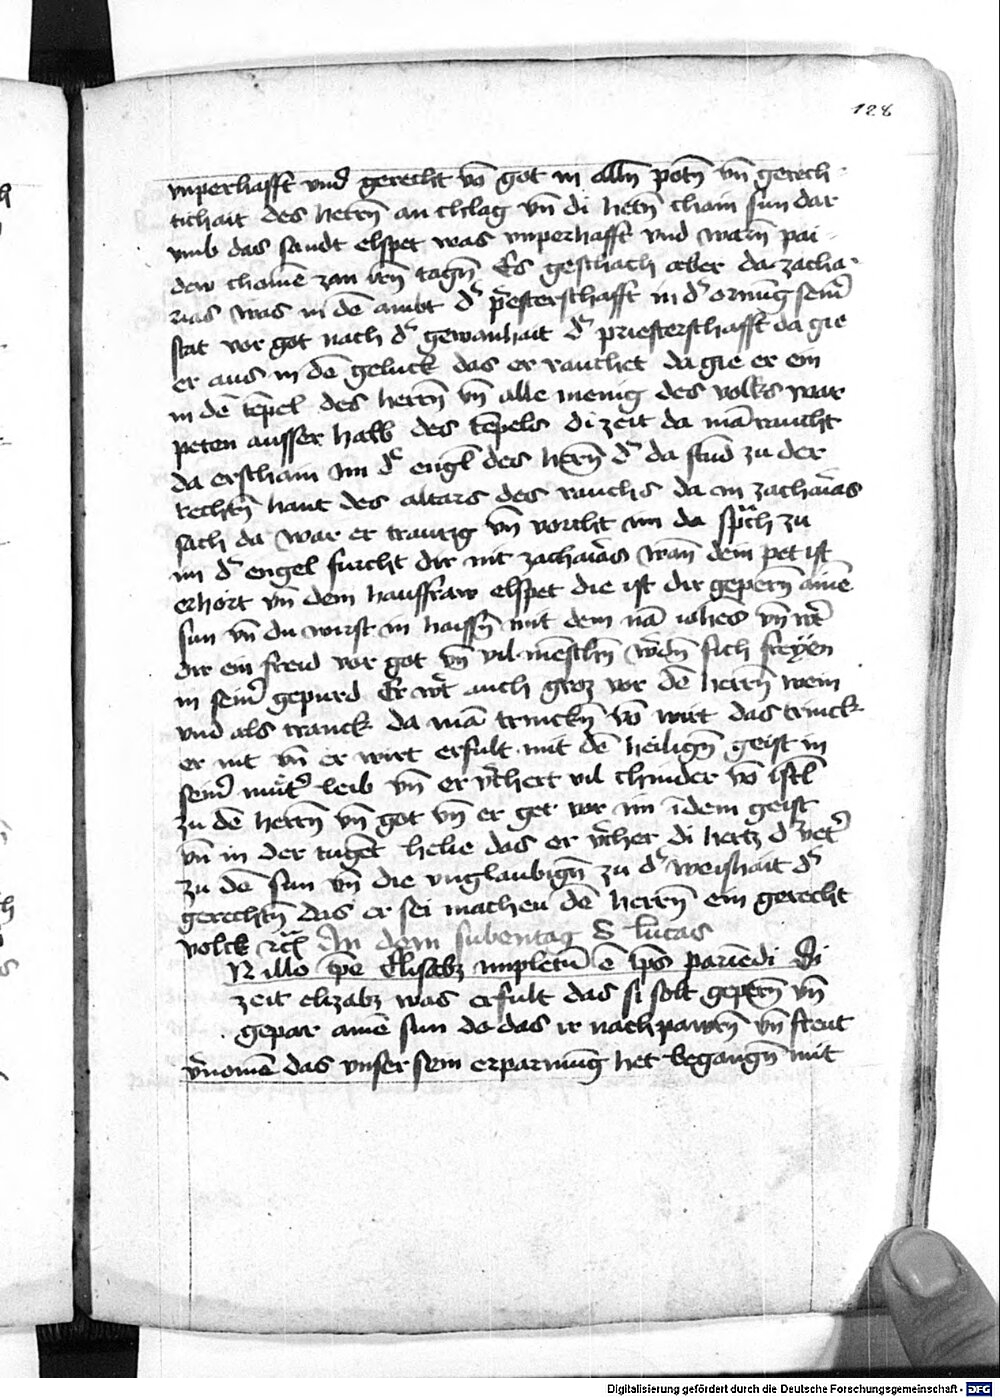 128
vnperhafft vnd gerecht võ got in alln̄ potn̄ vn̄ gerech
tichait des herrn̄ an chlag vn̄ di hetn̄ chain sun dar
vmb das sandt elspet was vnperhafft vnd warn̄ pai
dew chomē zan irn̄ tagn̄ Es geschach aber da zacha
rias was in dē ambt dˀ pˀesterschafft in dˀ ornūg seinˀ
stat vor got nach dˀ gewanhait dˀ priesterschafft da gie
er aus in dē geluck das er rauchet da gie er ein
in dē tēpel des herrn̄ vn̄ alle menig des volks war
peten ausser halb des tēpels di zeit da mā raucht
da erscham im dˀ engl des hern̄ dˀ da stūd zu der
rechtn̄ hant des altars des rauchs da in zachaias
sach da war er traurig vn̄ vorcht im da spͣch zu
im dˀ engel furcht dir nit zachaias wan̄ dein pet ist
erhort vn̄ dem hausfraw elspet die ist dir gepern̄ ainē
sun vn̄ du wirst in haissn̄ mit dem nā iohes vn̄ wˀt
dir ein freud vor got vn̄ vil mēschn̄ wˀdn̄ sich freyen
in seinˀ gepurd Er wˀt auch groz vor dē herrn̄ wein
vnd als tranck da mā trinckn̄ võ wirt das trinck
er nit vn̄ er wirt erfult mit dē heilign̄ geist in
seinˀ mutˀ leib vn̄ er vˀchert vil chinder võ isrl̄
zu dē herrn̄ vn̄ got vn̄ er get vor im ī dem geist
vn̄ in der tugēt helie das er vˀcher di hertz dˀ vetˀ
zu dē sun vn̄ die vnglaubign̄ zu dˀ weishait dˀ
gerechtn̄ das er sei machen dē herrn̄ ein gerecht
volck rc̄ An dem subentag S lucas
N illo tp̄e Elisabz impletū ē tp̄s pariēdi Di
zeit elizabz was erfult das si solt gepern̄ vn̄
gepar ainē sun do das ir nachpawrn̄ vn̄ freut
vˀnomē das vnser sein erparmūg het begangn̄ mit
Digitalisierung gefördert durch die Deutsche Forschungsgemeinschaft - DFG